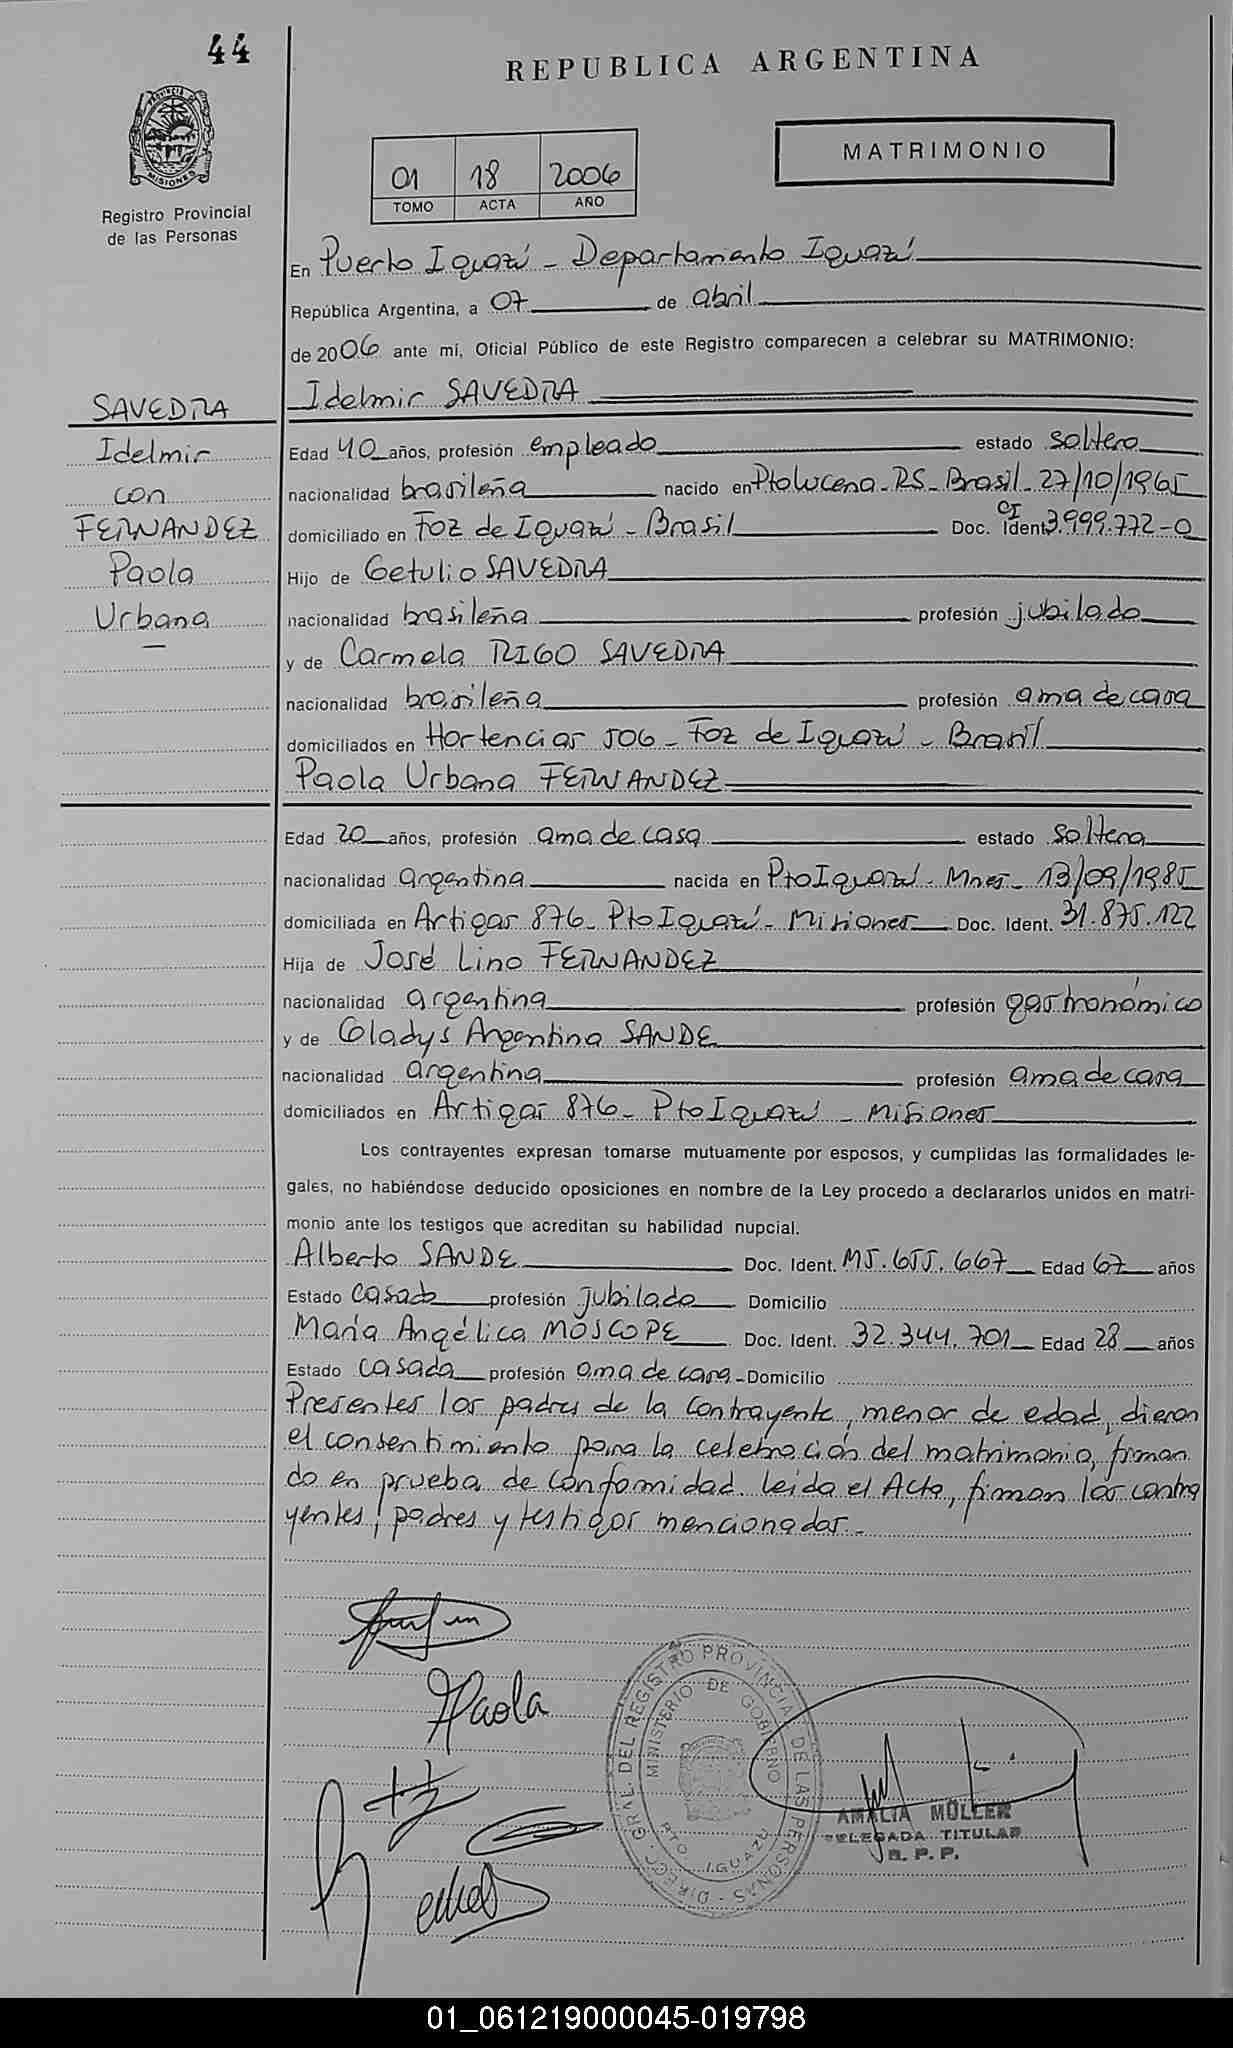 44
REPUBLICA ARGENTINA
PROVINCIA DE MISIONES
Registro Provincial
de las Personas
01 18 2006
TOMO ACTA AÑO
MATRIMONIO
En Puerto Iguazú - Departamento Iguazú
República Argentina, a 07 de abril
de 2006 ante mí, Oficial Público de este Registro comparecen a celebrar su MATRIMONIO:
SAVEDRA
Idelmir
con
FERNANDEZ
Paola
Urbana
Idelmir SAVEDRA
Edad 40 años, profesión empleado estado soltero
nacionalidad brasileña nacido en Pto Lucena - RS - Brasil - 27/10/1965
domiciliado en Foz de Iguazú - Brasil Doc. Ident. CI 3.999.772-0
Hijo de Getulio SAVEDRA
nacionalidad brasileña profesión jubilado
y de Carmela RIGO SAVEDRA
nacionalidad brasileña profesión ama de casa
domiciliados en Hortencias 506 - Foz de Iguazú - Brasil
Paola Urbana FERNANDEZ
Edad 20 años, profesión ama de casa estado soltera
nacionalidad argentina nacida en Pto Iguazú - Mnes - 13/09/1985
domiciliada en Artigas 876 - Pto Iguazú - Misiones Doc. Ident. 31.875.122
Hija de José Lino FERNANDEZ
nacionalidad argentina profesión gastronómico
y de Gladys Argentina SANDE
nacionalidad argentina profesión ama de casa
domiciliados en Artigas 876 - Pto Iguazú - Misiones
Los contrayentes expresan tomarse mutuamente por esposos, y cumplidas las formalidades le-
gales, no habiéndose deducido oposiciones en nombre de la Ley procedo a declararlos unidos en matri-
monio ante los testigos que acreditan su habilidad nupcial.
Alberto SANDE Doc. Ident. M5.655.667 Edad 67 años
Estado casado profesión jubilado Domicilio
María Angélica MOSCOPE Doc. Ident. 32.344.701 Edad 28 años
Estado casada profesión ama de casa - Domicilio
Presentes los padres de la contrayente, menor de edad, dieron
el consentimiento para la celebración del matrimonio, firman
do en prueba de conformidad. Leida el Acta, firman los contra
yentes, padres y testigos mencionados.-
Paola
DIRECC. GRAL. DEL REGISTRO PROVINCIAL DE LAS PERSONAS
MINISTERIO DE GOBIERNO
PTO. IGUAZU
AMALIA MÜLLER
DELEGADA TITULAR
R. P. P.
01_061219000045-019798